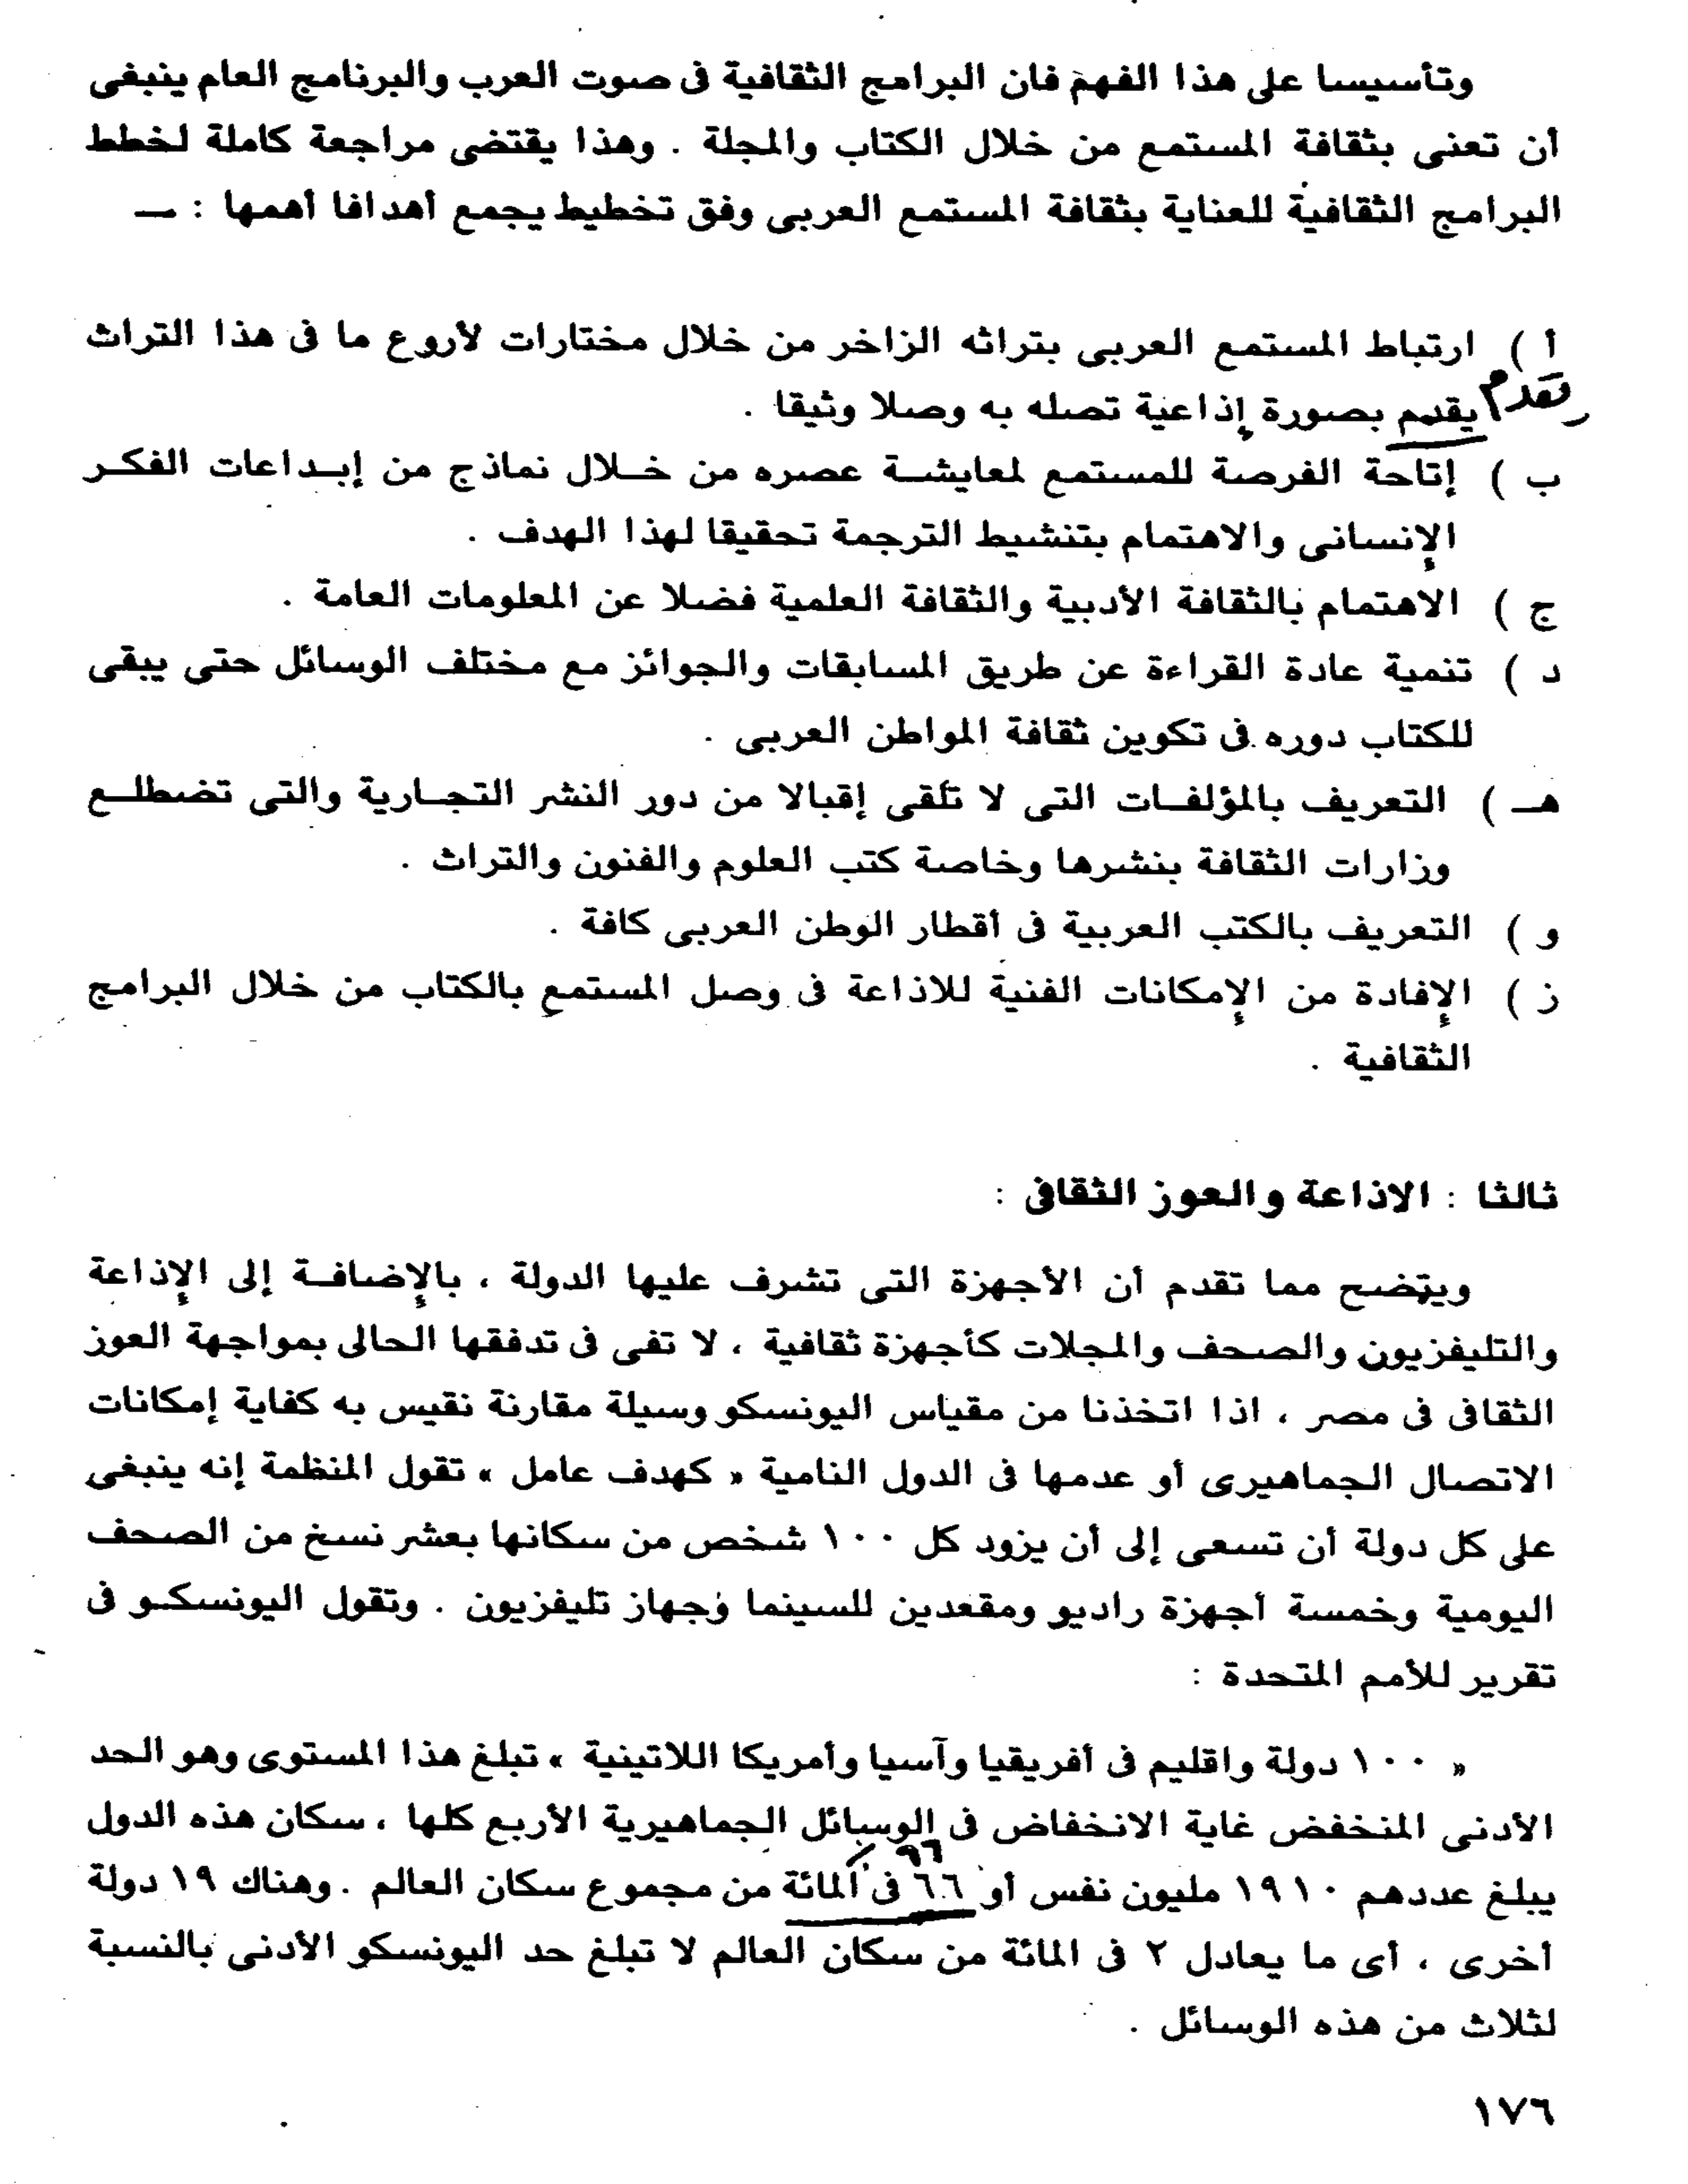 وتأسيسا على هذا الفهم فان البرامج الثقافية فى صوت العرب والبرنامج العام ينبغى
أن تعنى بثقافة المستمع من خلال الكتاب والمجلة . وهذا يقتضى مراجعة كاملة لخطط
البرامج الثقافية للعناية بثقافة المستمع العربى وفق تخطيط يجمع أهدافا أهمها : ــ
أ ) ارتباط المستمع العربى بتراثه الزاخر من خلال مختارات لأروع ما فى هذا التراث
تقدم
يقدم بصورة إذاعية تصله به وصلا وثيقا .
ب ) إتاحة الفرصة للمستمع لمعايشـة عصره من خـلال نماذج من إبـداعات الفكـر
الإنسانى والاهتمام بتنشيط الترجمة تحقيقا لهذا الهدف .
ج ) الاهتمام بالثقافة الأدبية والثقافة العلمية فضلا عن المعلومات العامة .
د ) تنمية عادة القراءة عن طريق المسابقات والجوائز مع مختلف الوسائل حتى يبقى
للكتاب دوره فى تكوين ثقافة المواطن العربى .
هـ ) التعريف بالمؤلفـات التى لا تلقى إقبالا من دور النشر التجـارية والتى تضطلـع
وزارات الثقافة بنشرها وخاصة كتب العلوم والفنون والتراث .
و ) التعريف بالكتب العربية فى أقطار الوطن العربى كافة .
ز ) الإفادة من الإمكانات الفنية للاذاعة فى وصل المستمع بالكتاب من خلال البرامج
الثقافية .
ثالثا : الاذاعة والعوز الثقافى :
ويتضح مما تقدم أن الأجهزة التى تشرف عليها الدولة ، بالإضافـة إلى الإذاعة
والتليفزيون والصحف والمجلات كأجهزة ثقافية ، لا تفى فى تدفقها الحالى بمواجهة العوز
الثقافى فى مصر ، اذا اتخذنا من مقياس اليونسكو وسيلة مقارنة نقيس به كفاية إمكانات
الاتصال الجماهيرى أو عدمها فى الدول النامية « كهدف عامل » تقول المنظمة إنه ينبغى
على كل دولة أن تسعى إلى أن يزود كل ١٠٠ شخص من سكانها بعشر نسخ من الصحف
اليومية وخمسة أجهزة راديو ومقعدين للسينما وجهاز تليفزيون . وتقول اليونسكـو فى
تقرير للأمم المتحدة :
« ١٠٠ دولة واقليم فى أفريقيا وآسيا وأمريكا اللاتينية » تبلغ هذا المستوى وهو الحد
الأدنى المنخفض غاية الانخفاض فى الوسائل الجماهيرية الأربع كلها ، سكان هذه الدول
٦٦ ٪
يبلغ عددهم ١٩١٠ مليون نفس أو ٦٦ فى المائة من مجموع سكان العالم . وهناك ١٩ دولة
أخرى ، أى ما يعادل ٢ فى المائة من سكان العالم لا تبلغ حد اليونسكو الأدنى بالنسبة
لثلاث من هذه الوسائل .
١٧٦